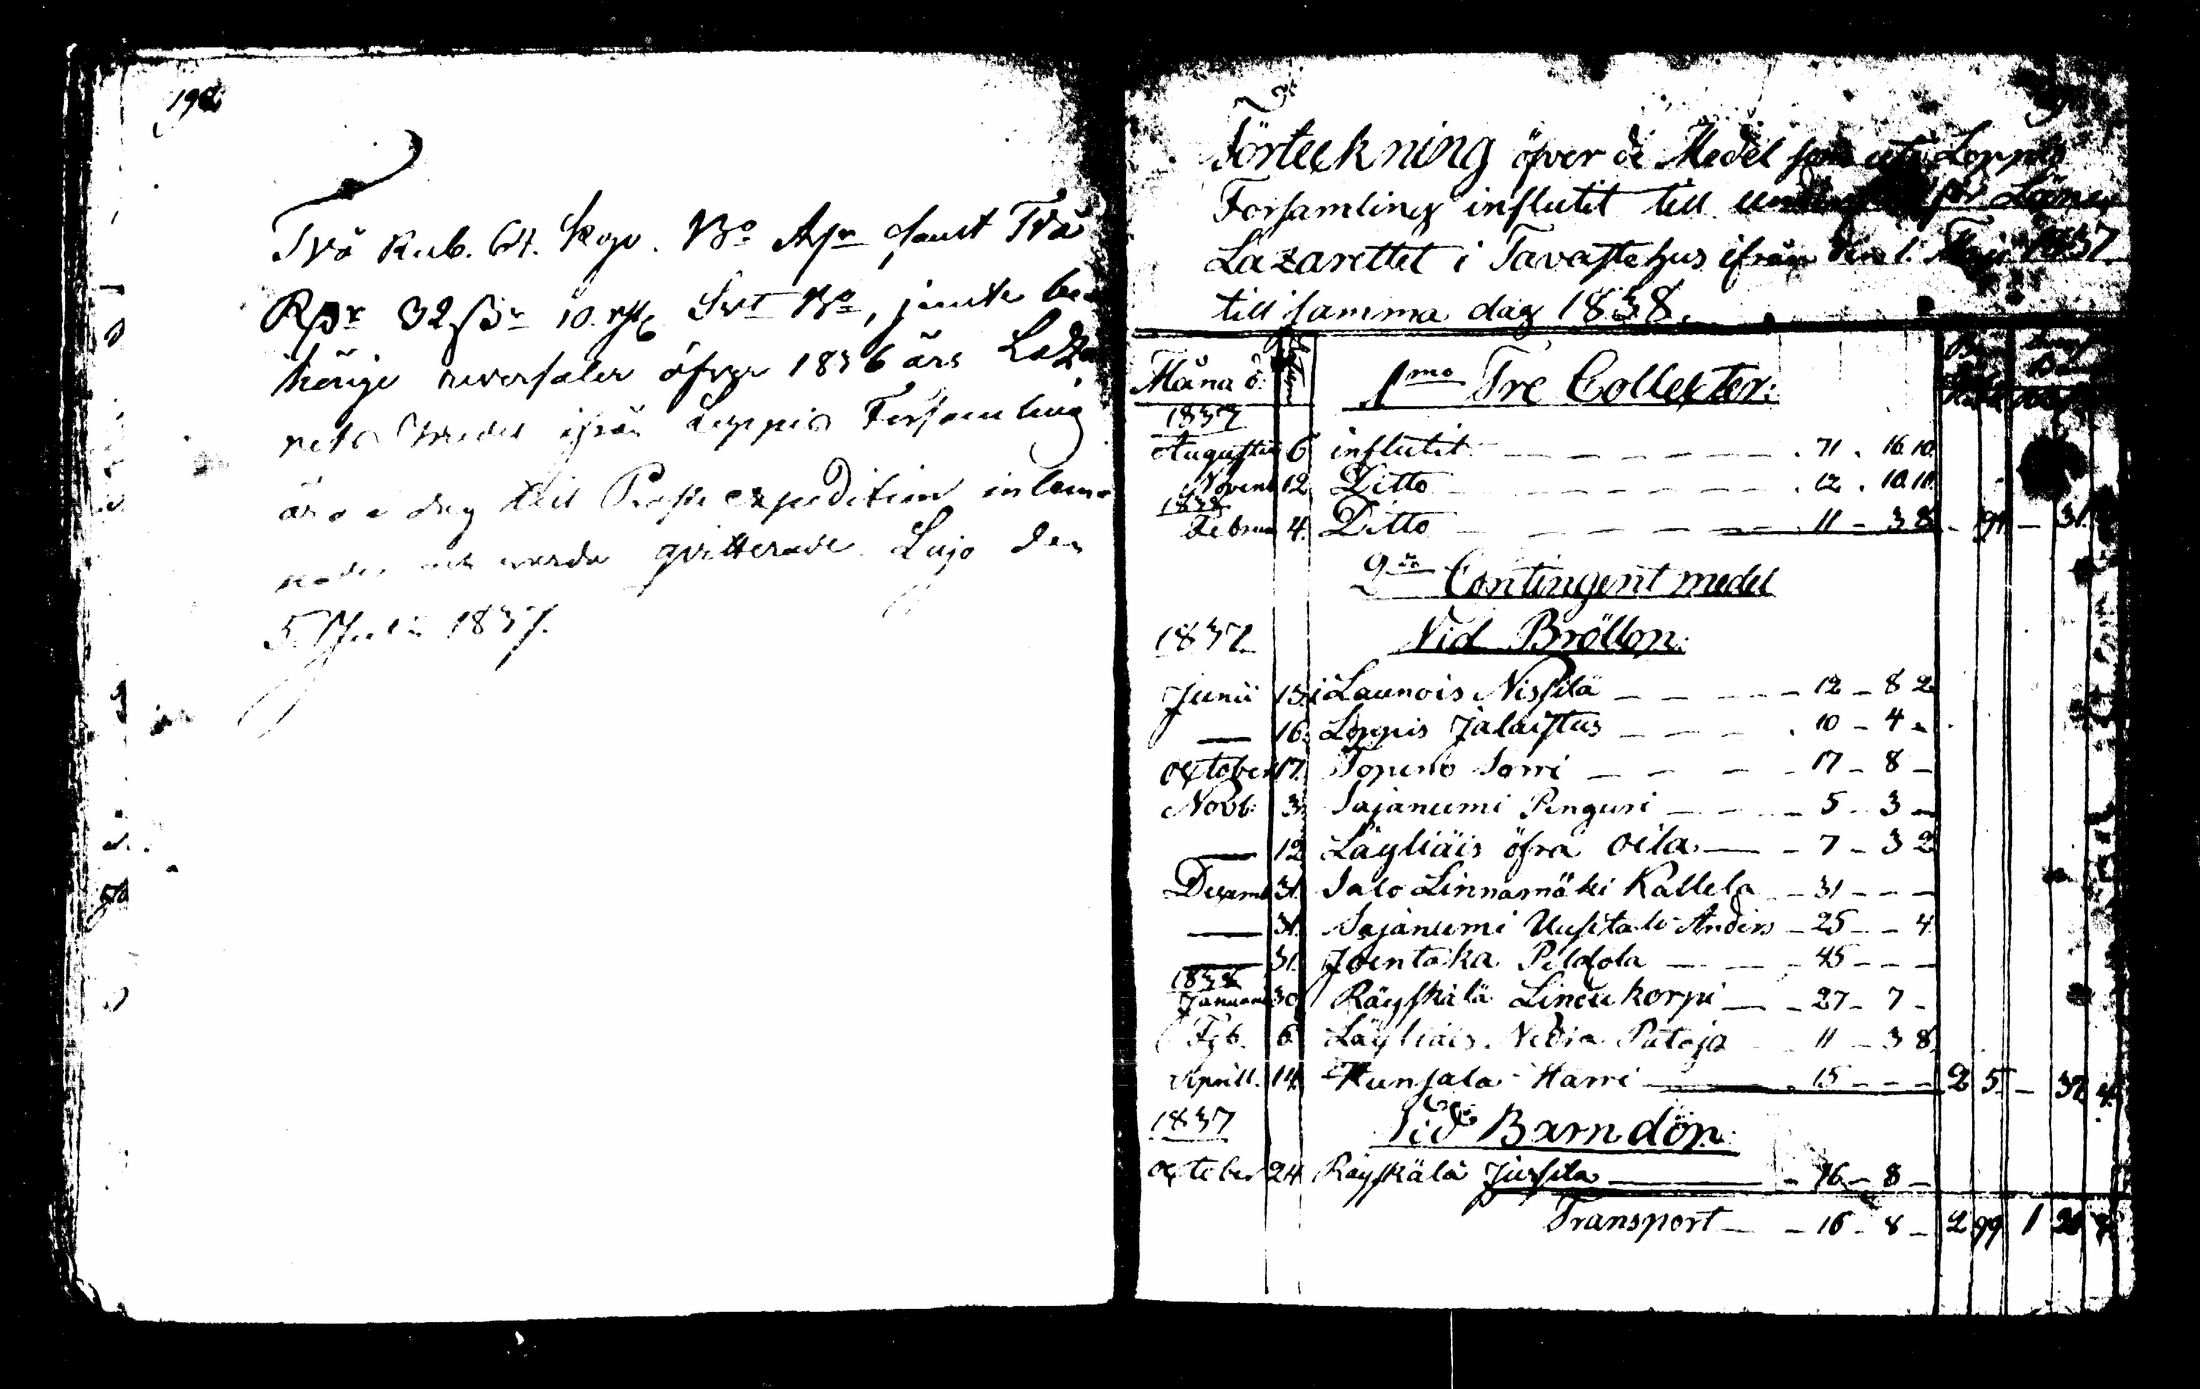 198
Två Rub. 64. Kop. Bco Ass samt Två
Rdr 32 sk 10 rst Svt Bco, jemte be-
hörige reversaler öfver 1836 års Laza
rets Medel ifrån Loppis Församling
äro i dag till Post expedition inlem-
nade och warda qvitterade. Lojo den
5 Julii 1837.
Förteckning öfver de Medel som uti Loppis
Forsamling influtit till för Läns
Lazarettet i Tavastehus ifrån den 1. Maji 1837
till samma dag 1838.
Måna d: 1mo Tre Collecter:
1837
Augusti 6 influtit - 71 . 16 10
Novemb 12 Ditto - 12 . 10 10
1838
Februa 4. Ditto - 11 - 3 8 - 94 - 31
2do Contingent medel
1837 Vid Bröllop:
Junii 15. i Launois Nissilä - 12 - 8 2
— 16. Loppis Jalaistus - 10 - 4 -
October 17. Topeno Sorri - 17 - 8 -
Novb: 3. Sajanumi Penguri - 5 - 3 -
— 12 Läyliäis öfra Oila - 7 - 3 2
Decemb 31. Salo Linnamäki Kallela - 31 - - -
— 31. Sajanumi Uusitalo Anders - 25 - - 4
— 31. Joentaka Peldola - 45 - - -
1838
Januari 30 Räyskälä Lineu korpi - 27 - 7 -
Feb. 6 Läyliäis Nedra Pataja - 11 - 3 8
Aprill. 14. Hunsala Harri - 15 - - - 2 5 - 37 4
1837 Vid Barndöp:
October 24 Räyskälä Jussila - 16 - 8 -
Transport - 16 - 8 - 2 99 1 20